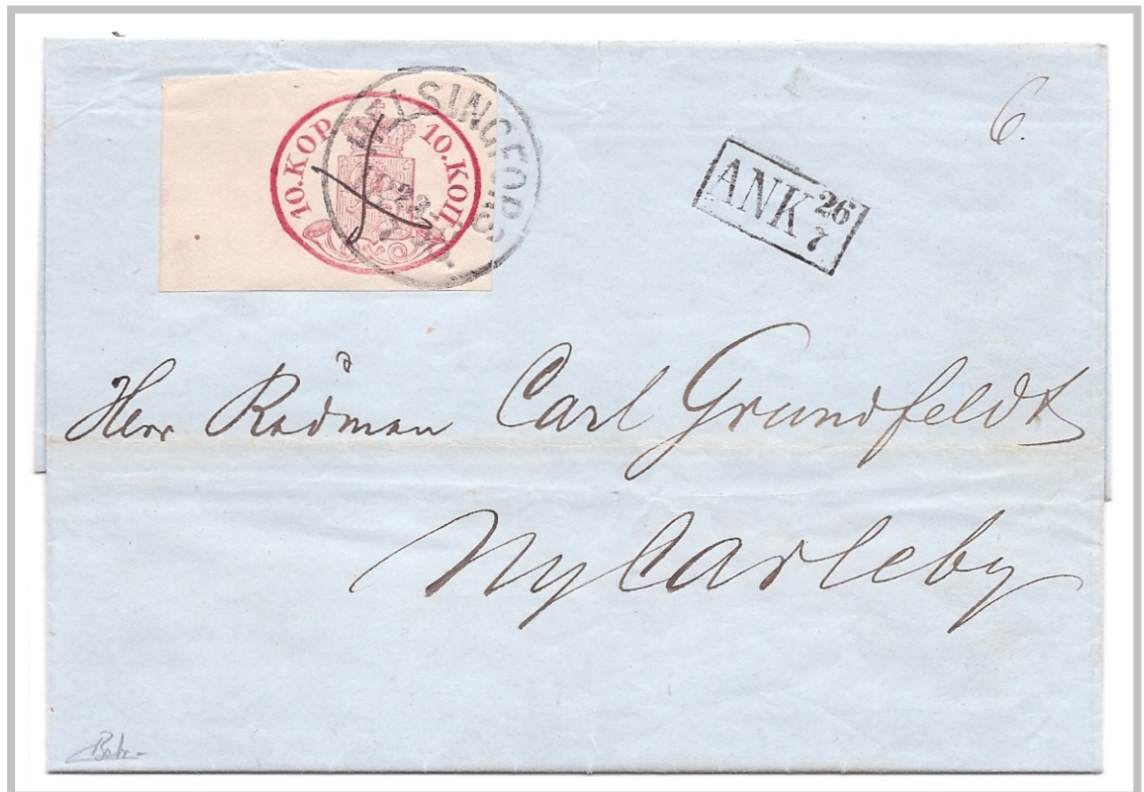 10.KOP 10.КОП.
HELSINGFORS
6.
ANK 26/7
Herr Rådman Carl Grundfeldt
NyCarleby